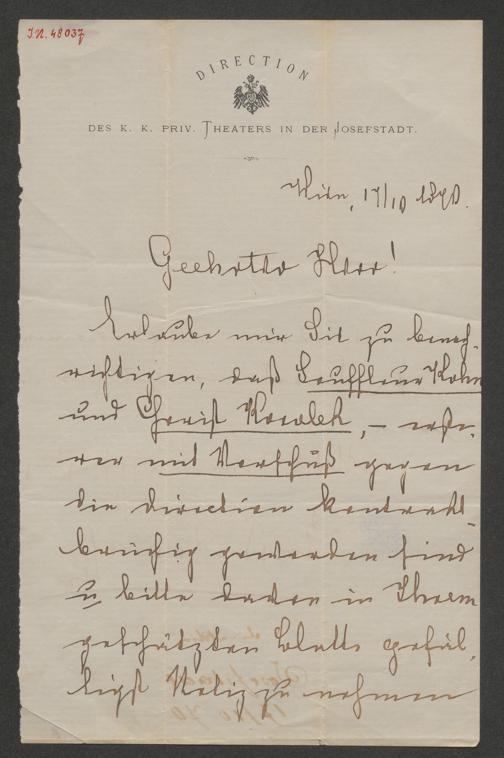 I.N. 48037
DIRECTION
DES K. K. PRIV. THEATERS IN DER JOSEFSTADT.
Wien, 17/10 1890.
Geehrter Herr!
Erlaube mir Sie zu benach-
richtigen, daß Souffleur Kohn
und Chorist Kowalek, – erste-
rer mit Vorschuß gegen
die Direction kontrakt-
brüchig geworden sind
u bitte davon in Ihrem
geschätzten Blatte gefäl-
ligst Notiz zu nehmen